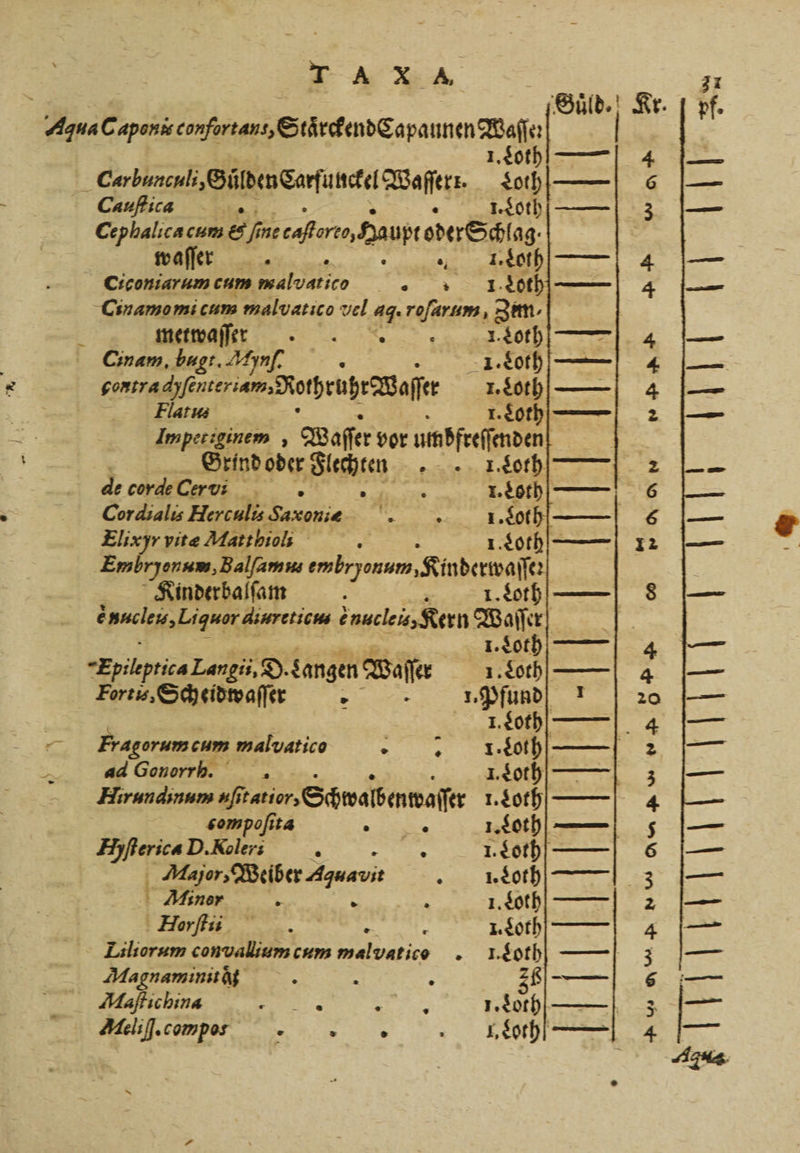 TAXA. 31
Gülb. Kr. pf.
Aqua Caponis confortans, StärckendCapaunenWasser
1. Loth —— 4 ——
Carbunculi, GüldenCarfunckelWassers. Loth —— 6 ——
Caustica . . . . 1. Loth —— 3 ——
Cephalica cum & sine castoreo, Haupt oder Schlag-
wasser . . . . 1. Loth —— 4 ——
Ciconiarum cum malvatico . . 1 Loth —— 4 ——
Cinamomi cum malvatico vel aq. rosarum, Zim-
metwasser . . . . 1. Loth —— 4 ——
Cinam. bugt. Myns. . . 1. Loth —— 4 ——
contra dysenteriam, RothruhrWasser 1. Loth —— 4 ——
Flatus . . . 1. Loth —— 2 ——
Impetiginem, Wasser vor umbfressenden
Grind oder Flechten . . 1. Loth —— 2 ——
de corde Cervi . . . 1. Loth —— 6 ——
Cordialis Herculis Saxoniæ . . 1. Loth —— 6 ——
Elixyr vitæ Matthioli . . 1. Loth —— 12 ——
Embryonum, Balsamus embryonum, Kinderwasser
Kinderbalsam . . 1. Loth —— 8 ——
è nucleis, Liquor diureticus è nucleis, Kern Wasser
1. Loth —— 4 ——
Epileptica Langii, D. Langen Wasser 1. Loth —— 4 ——
Fortis, Scheidwasser . . 1. Pfund 1 20 ——
1. Loth —— 4 ——
Fragorum cum malvatico . . 1. Loth —— 2 ——
ad Gonorrh. . . . . 1. Loth —— 3 ——
Hirundinum usitatior, Schwalbenwasser 1. Loth —— 4 ——
composita . . 1. Loth —— 5 ——
Hysterica D. Koleri . . . 1. Loth —— 6 ——
Major, Weiber Aquavit . 1. Loth —— 3 ——
Minor . . . 1. Loth —— 2 ——
Horstii . . . 1. Loth —— 4 ——
Liliorum convallium cum malvatico . 1. Loth —— 3 ——
Magnaminit. . . . ℥ß —— 6 ——
Mastichina . . . . 1. Loth —— 3 ——
Meliss. compos . . . . 1. Loth —— 4 ——
Aqua